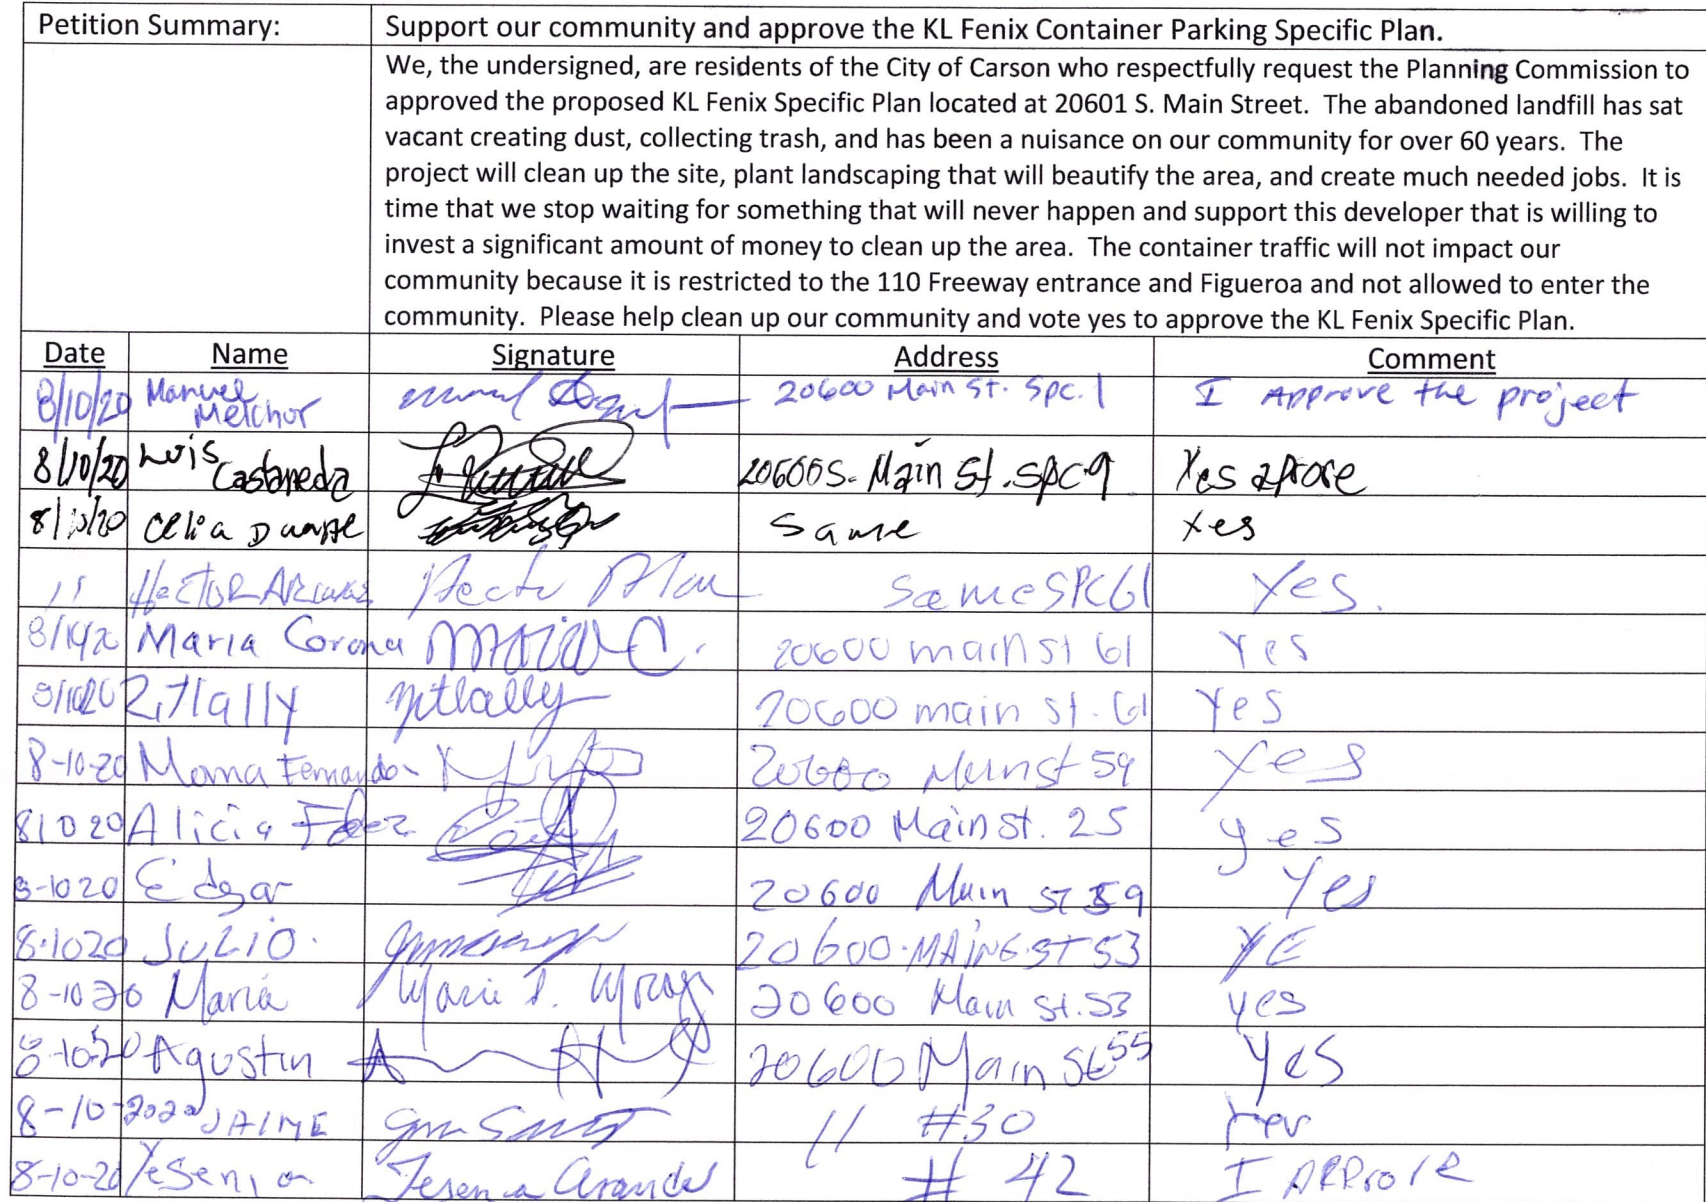 Petition Summary: Support our community and approve the KL Fenix Container Parking Specific Plan.
We, the undersigned, are residents of the City of Carson who respectfully request the Planning Commission to
approved the proposed KL Fenix Specific Plan located at 20601 S. Main Street. The abandoned landfill has sat
vacant creating dust, collecting trash, and has been a nuisance on our community for over 60 years. The
project will clean up the site, plant landscaping that will beautify the area, and create much needed jobs. It is
time that we stop waiting for something that will never happen and support this developer that is willing to
invest a significant amount of money to clean up the area. The container traffic will not impact our
community because it is restricted to the 110 Freeway entrance and Figueroa and not allowed to enter the
community. Please help clean up our community and vote yes to approve the KL Fenix Specific Plan.
Date Name Signature Address Comment
8/10/20 Manuel Melchor 20600 Main St. Spc. 1 I Approve the project
8/10/20 Luis Castaneda 20600 S. Main St. Spc 9 Yes aprove
8/10/20 Celia Duarte Same Yes
11 Hector Same SPC 61 Yes.
Maria Corona Maria C. 20600 main st 61 Yes
Zitlally zitlally 20600 main st. 61 Yes
8-10-20 20600 Main st 59 Yes
81020 Alicia 20600 Main st. 25 yes
8-1020 Edgar 20600 Main ST 59 Yes
8-1020 JULIO. 20600 MAINE ST 53 YE
8-10 20 Maria 20600 Main St. 53 yes
Agustin 20600 Main St 55 Yes
8-10-2020 JAIME 11 #30
8-10-20 Yesenia Yesenia Aranda # 42 I APProve